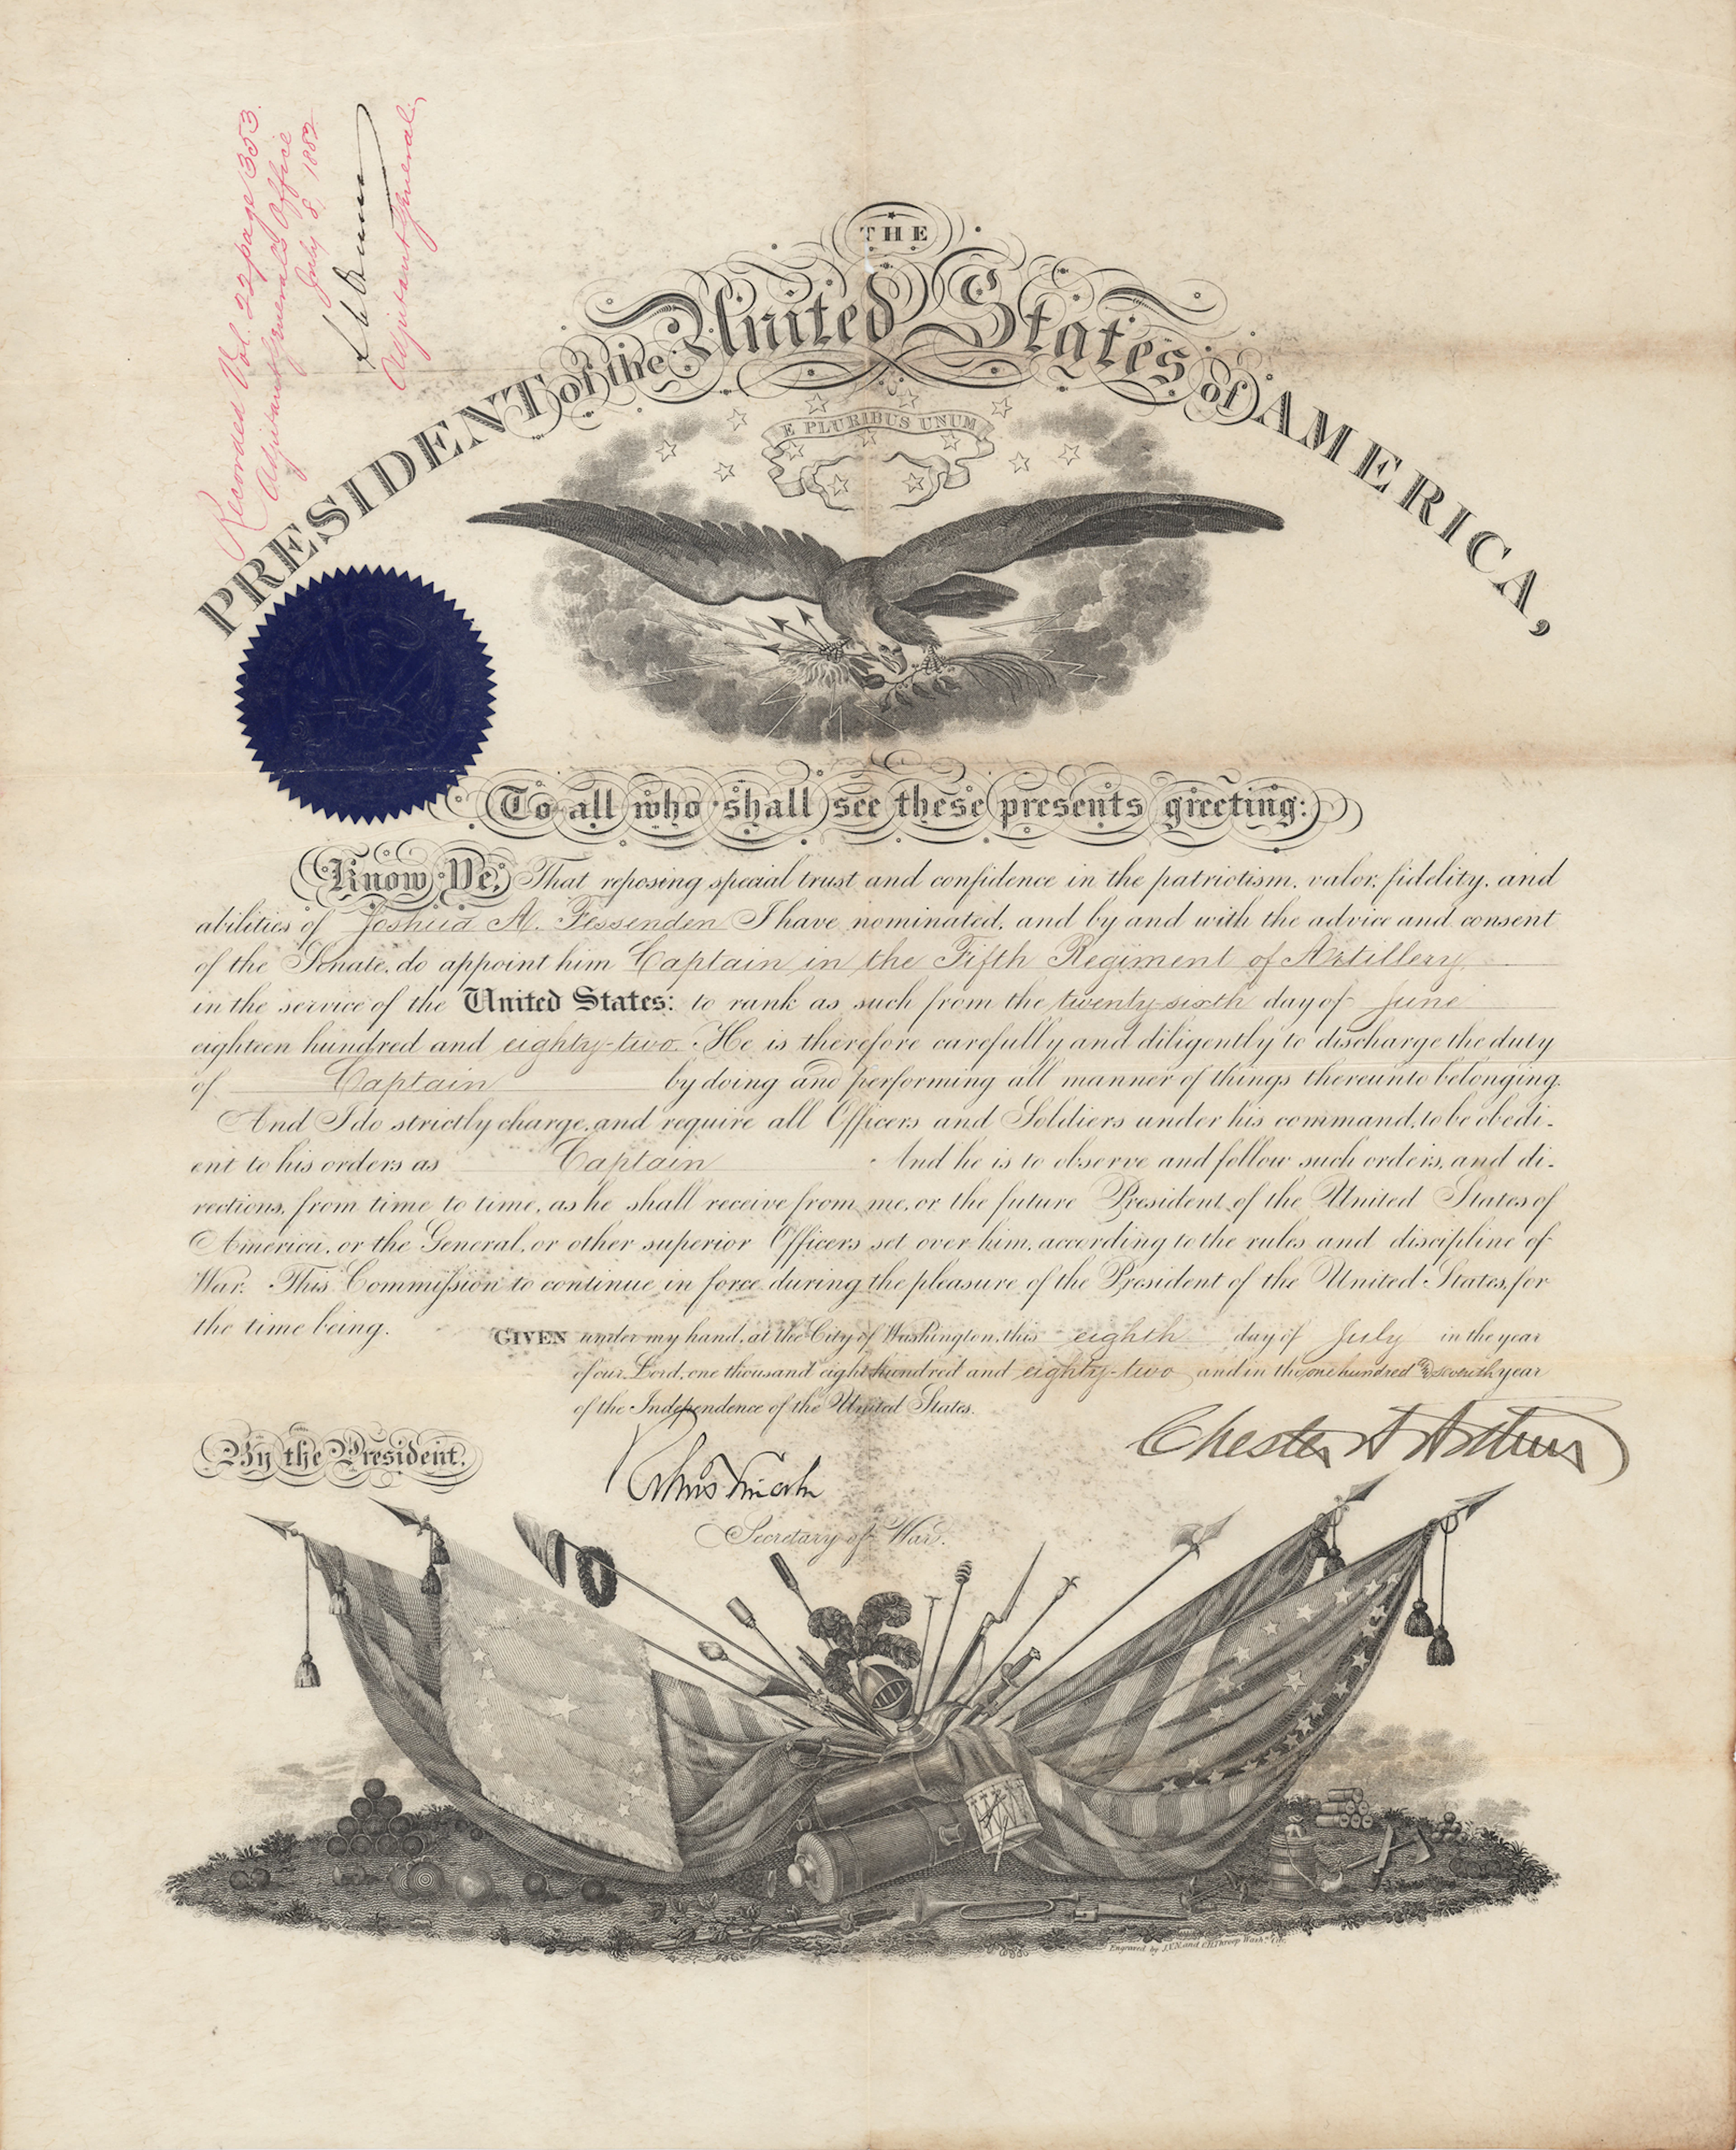 Recorded Vol. 22 page 353.
Adjutant General's Office
July 8, 1882
Adjutant General.
THE
PRESIDENT of the United States of AMERICA,
E PLURIBUS UNUM
To all who shall see these presents greeting:
Know Ye, That reposing special trust and confidence in the patriotism, valor, fidelity, and
abilities of Joshua A. Fessenden I have nominated, and by and with the advice and consent
of the Senate, do appoint him Captain in the Fifth Regiment of Artillery
in the service of the United States: to rank as such from the twenty-sixth day of June
eighteen hundred and eighty-two. He is therefore carefully and diligently to discharge the duty
of Captain by doing and performing all manner of things thereunto belonging.
And I do strictly charge, and require all Officers and Soldiers under his command, to be obedi-
ent to his orders as Captain And he is to observe and follow such orders, and di-
rections, from time to time, as he shall receive from me, or the future President of the United States of
America, or the General, or other superior Officers set over him, according to the rules and discipline of
War. This Commission to continue in force during the pleasure of the President of the United States, for
the time being.
GIVEN under my hand, at the City of Washington, this eighth day of July in the year
of our Lord, one thousand eight hundred and eighty-two and in the one hundred and seventh year
of the Independence of the United States.
By the President.
Chester A Arthur
Robert T Lincoln
Secretary of War.
Engraved by J.V.N. and O.H. Throop Washn. City.